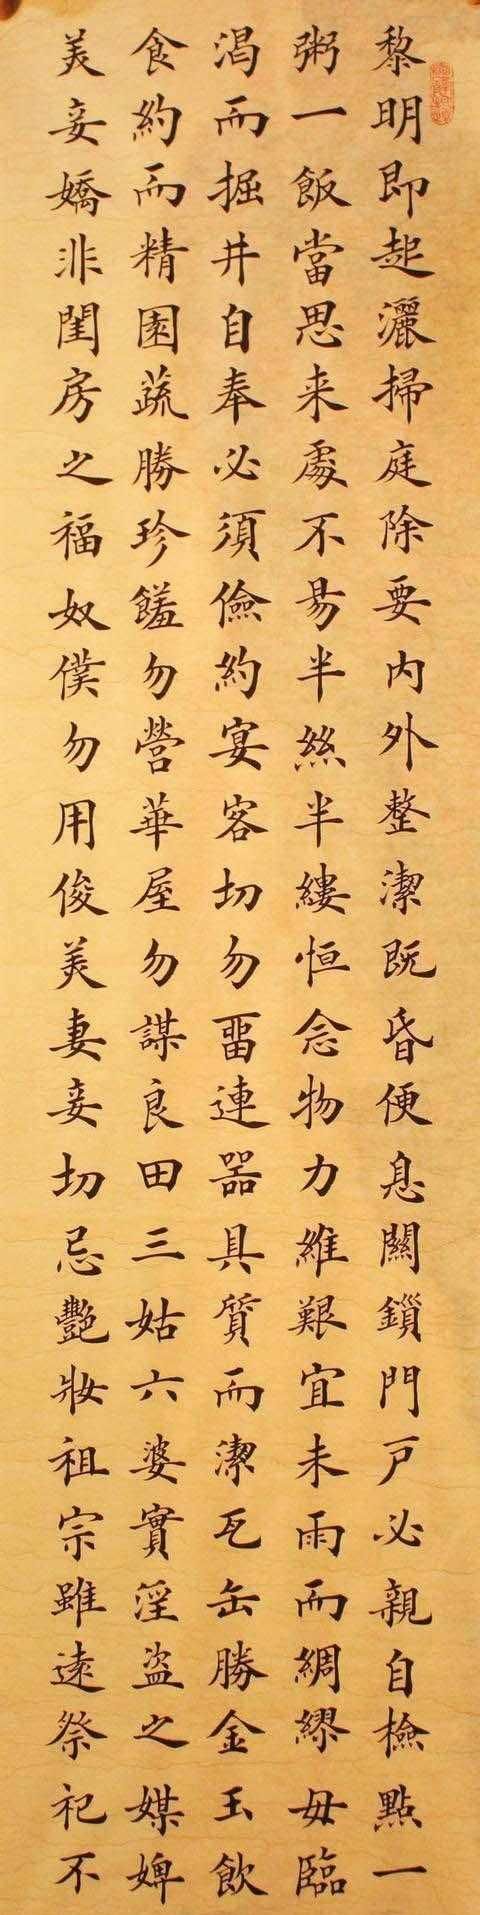 黎明即起灑掃庭除要內外整潔既昏便息關鎖門戶必親自檢點一
粥一飯當思来處不易半絲半縷恒念物力維艱宜未雨而綢繆毋臨
渴而掘井自奉必須儉約宴客切勿畱連器具質而潔瓦缶勝金玉飲
食約而精園蔬勝珍饈勿營華屋勿謀良田三姑六婆實淫盜之媒婢
美妾嬌非閨房之福奴僕勿用俊美妻妾切忌艷妝祖宗雖遠祭祀不